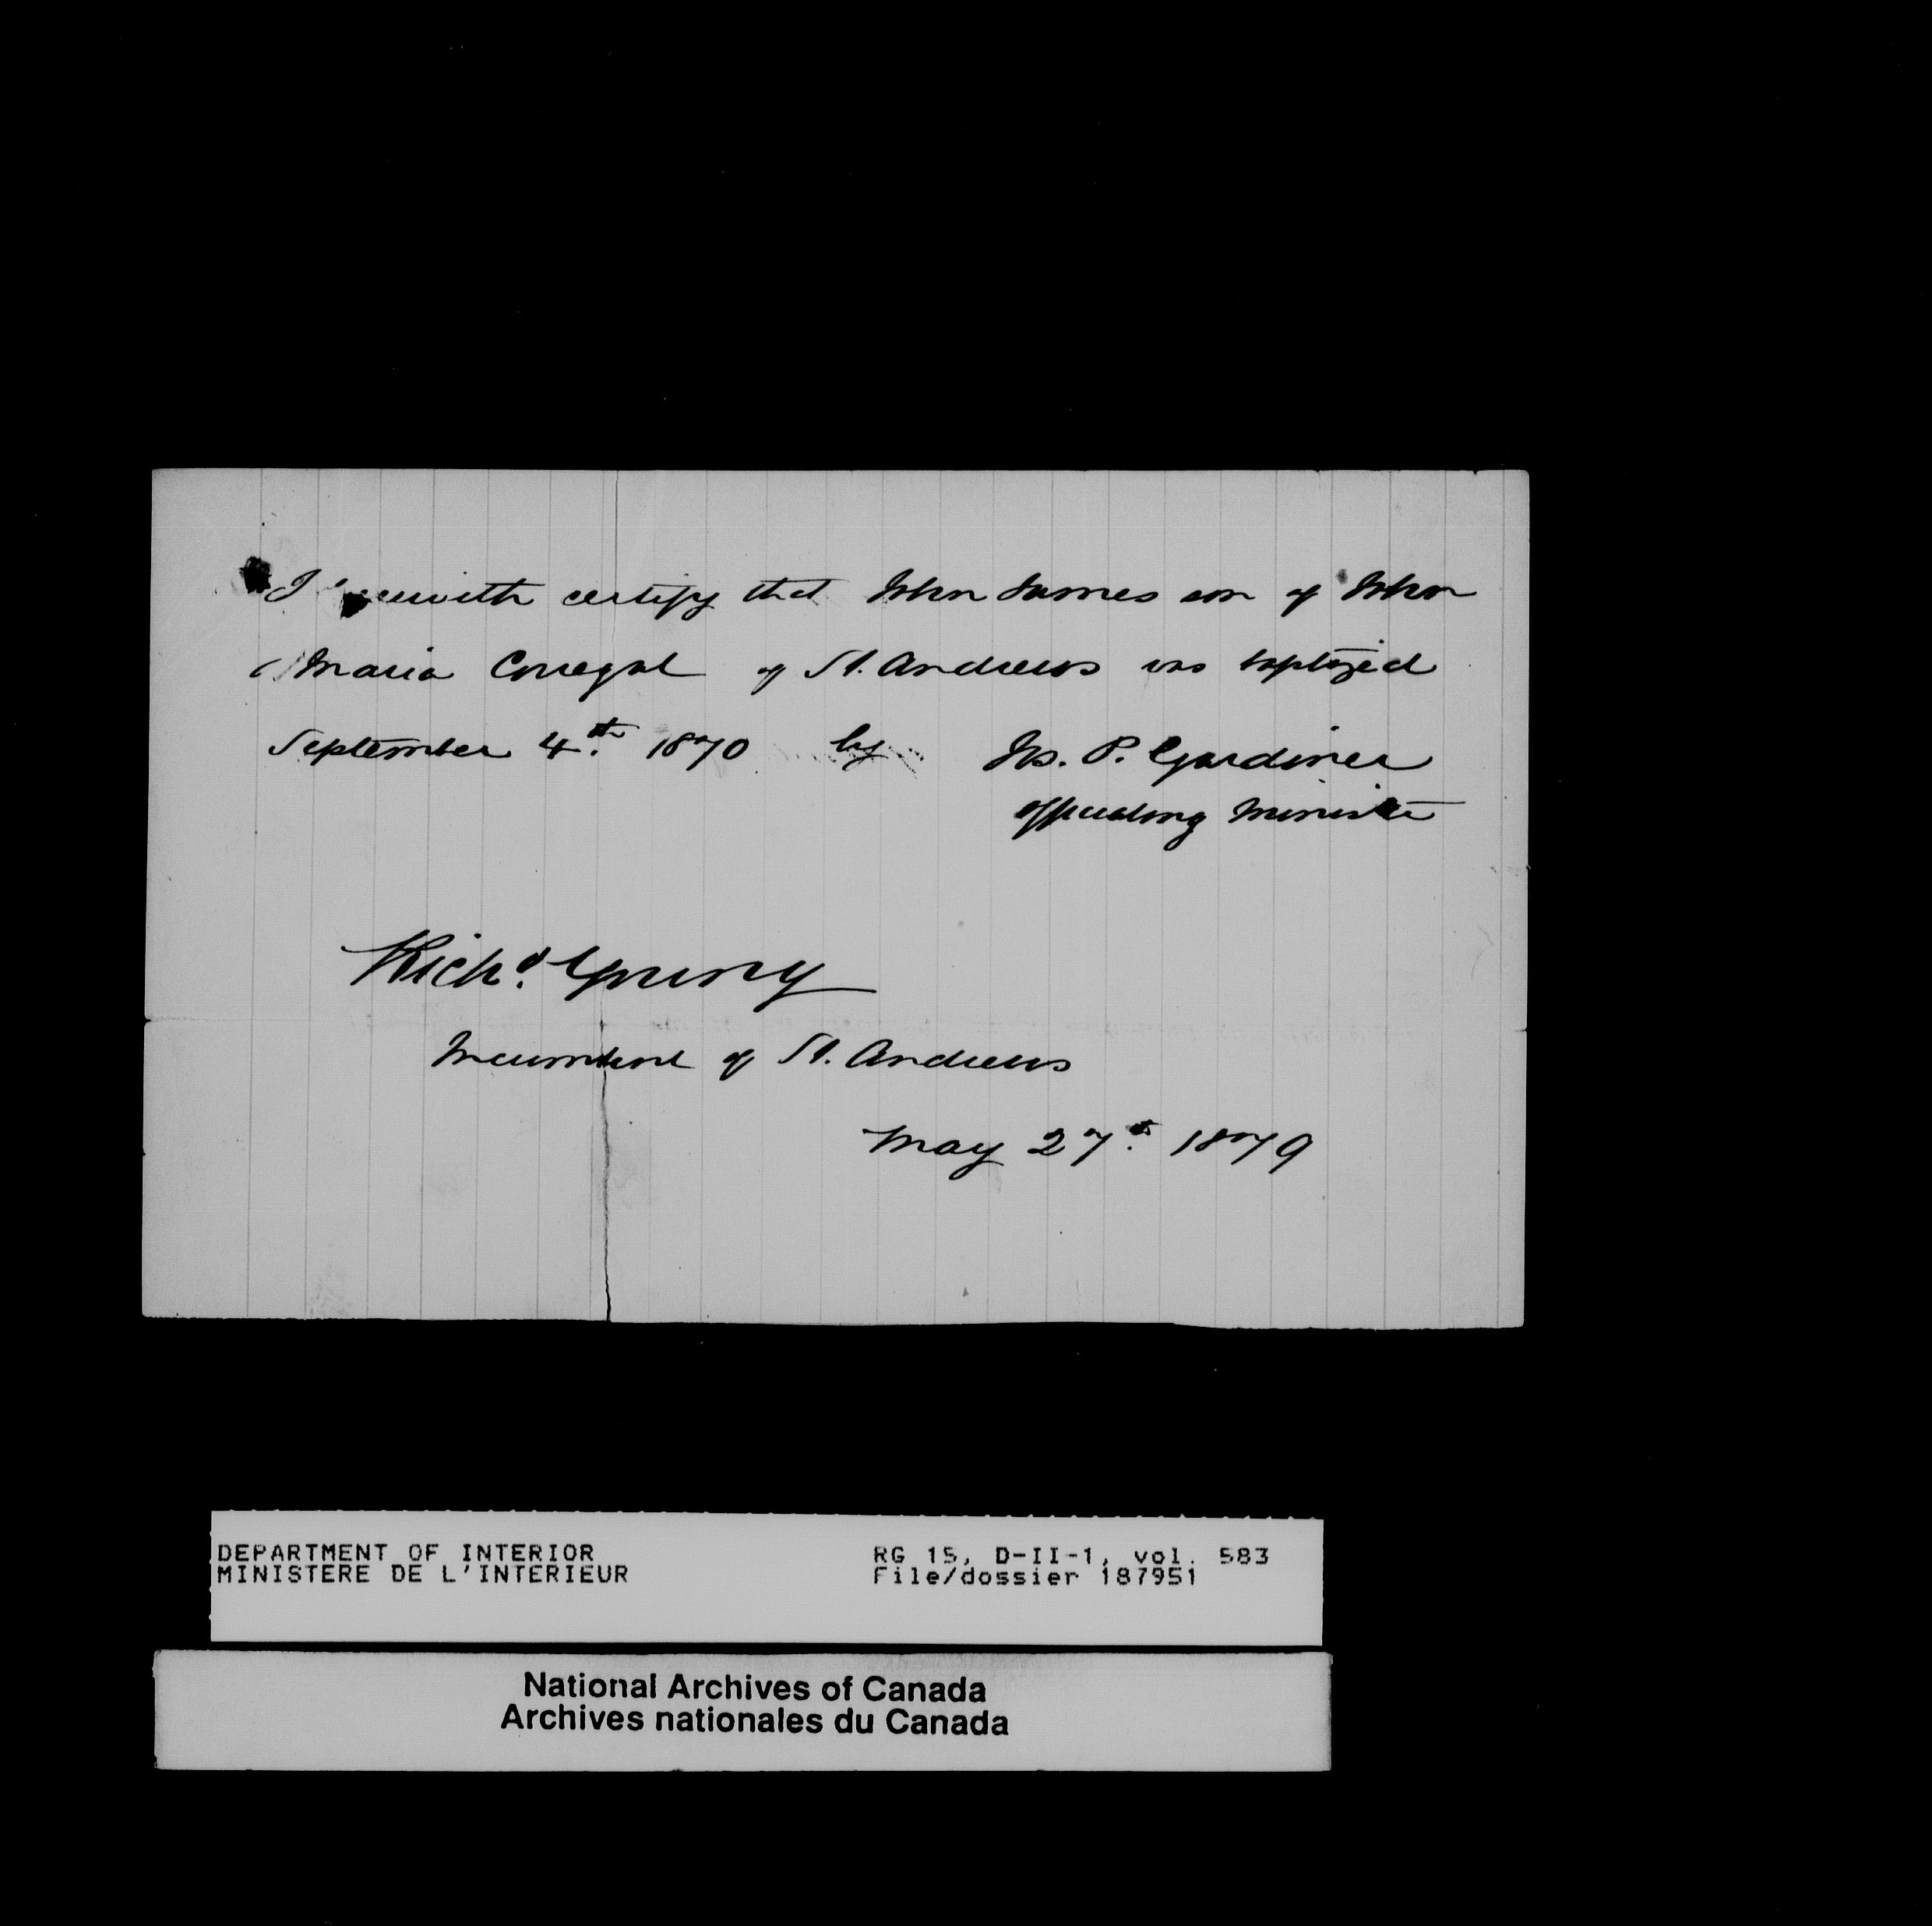 I herewith certify that John James son of John
& Maria Corrigal of St. Andrews was baptized
September 4th. 1870 by Jos. P. Gardiner
officiating Minister
Richd. Young
Incumbent of St. Andrews
May 27th. 1879
DEPARTMENT OF INTERIOR RG 15, D-II-1, vol. 583
MINISTERE DE L'INTERIEUR File/dossier 187951
National Archives of Canada
Archives nationales du Canada